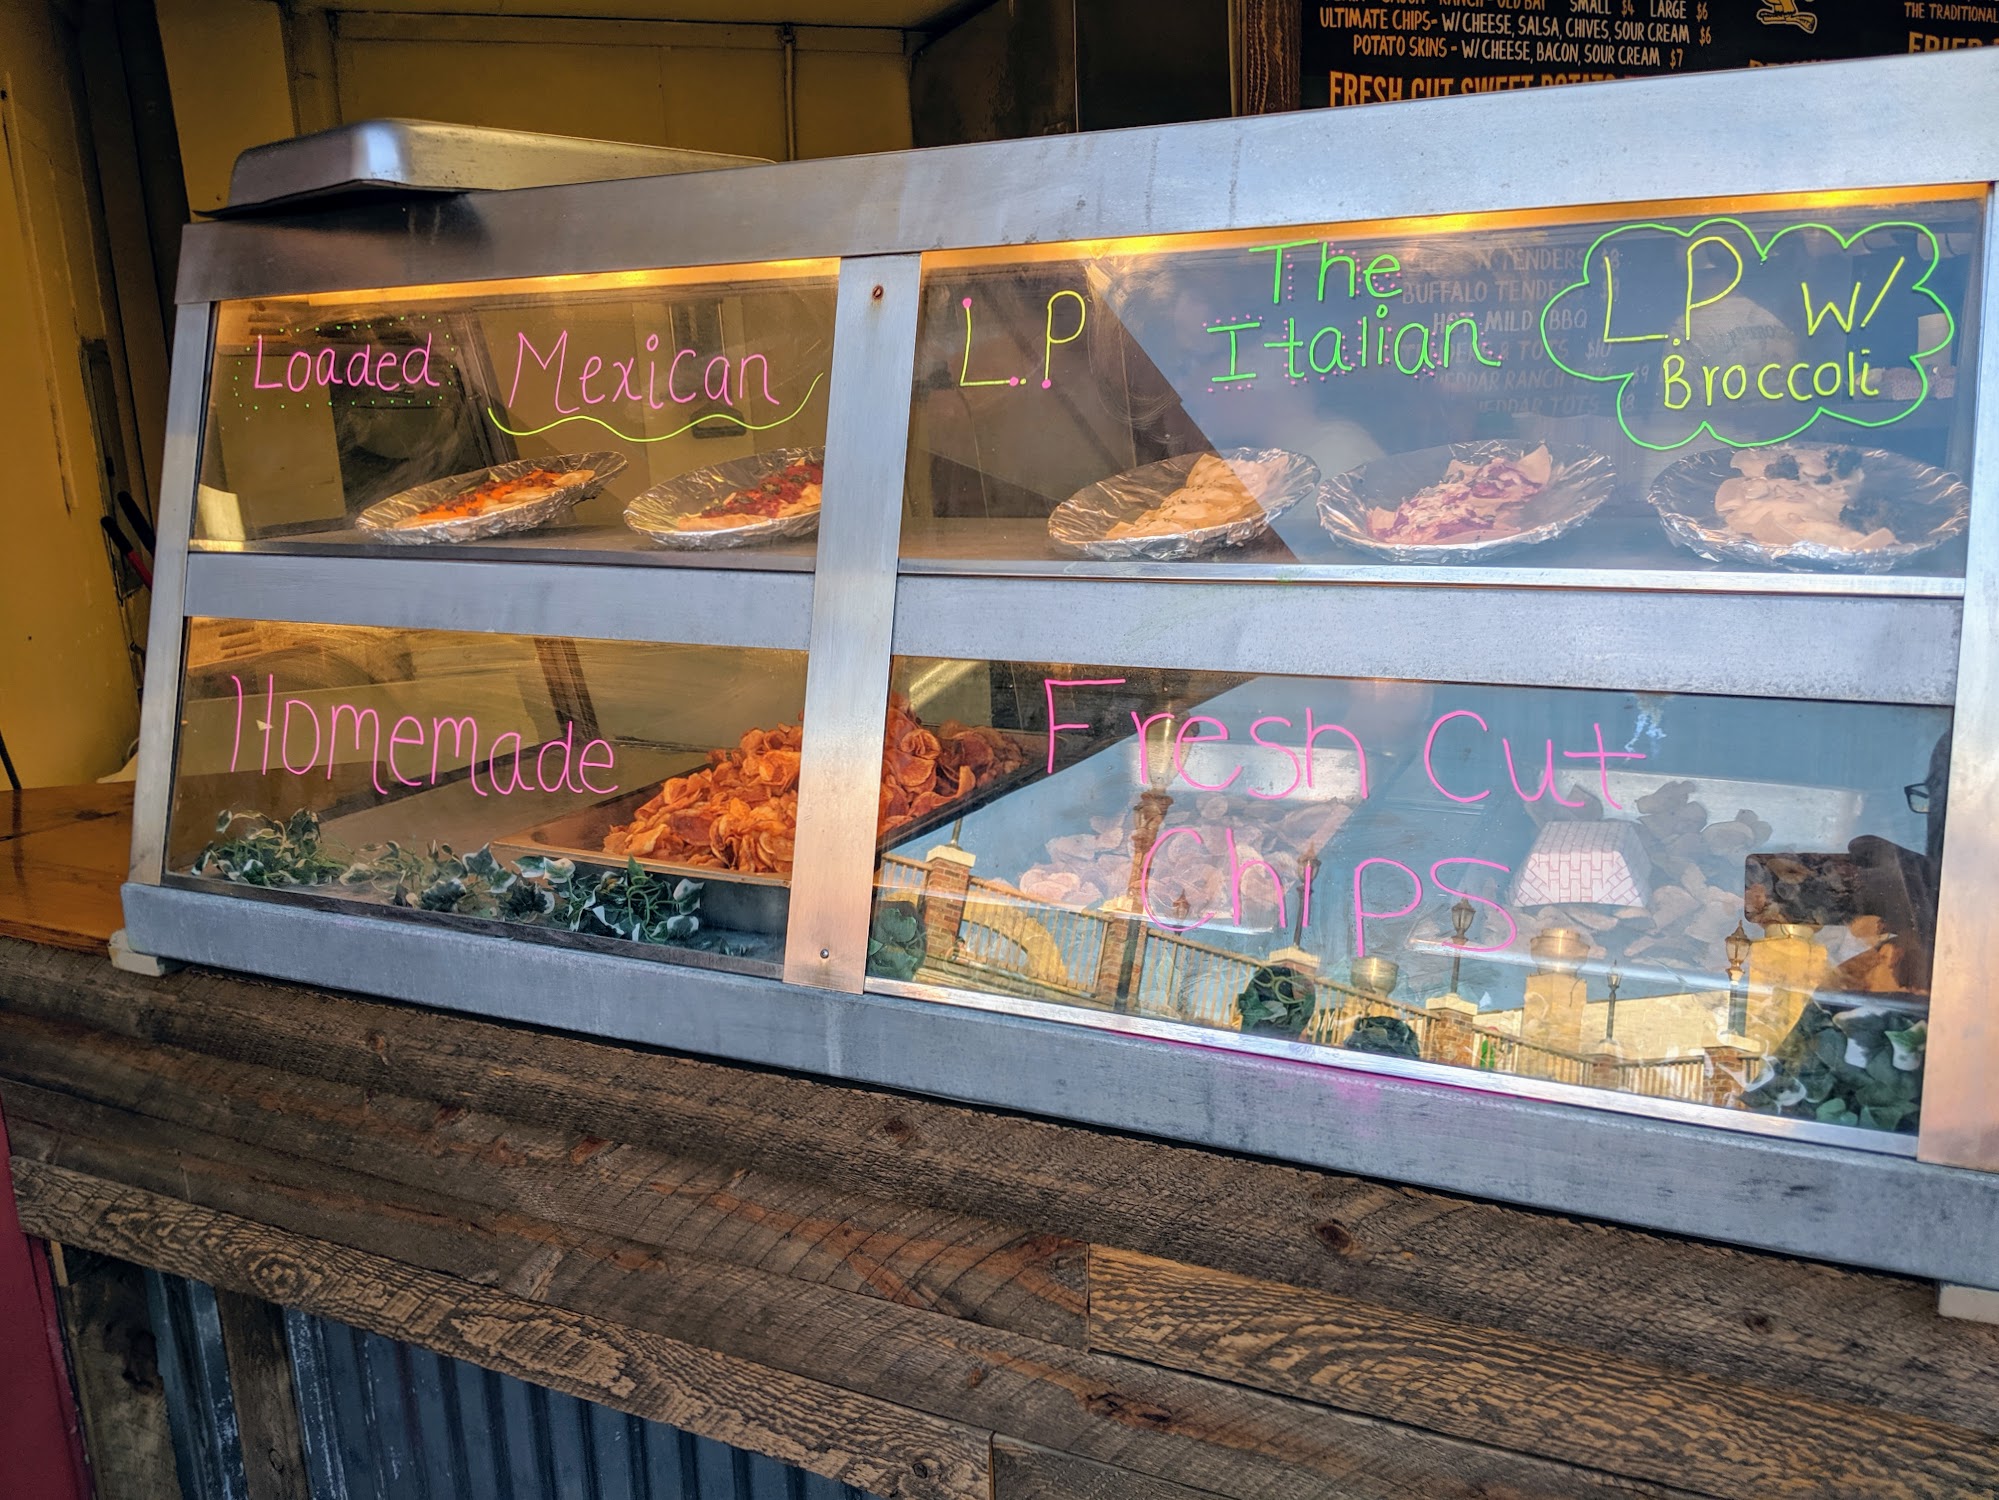 SMALL $4 LARGE $6
ULTIMATE CHIPS- W/ CHEESE, SALSA, CHIVES, SOUR CREAM $6
POTATO SKINS - W/ CHEESE, BACON, SOUR CREAM $7
FRESH CUT SWEET POTATO
THE TRADITIONAL
Loaded
Mexican
L.P
The
Italian
L.P W/
Broccoli
TENDERS
BUFFALO TENDERS
HOT MILD BBQ
Homemade
Fresh Cut
Chips